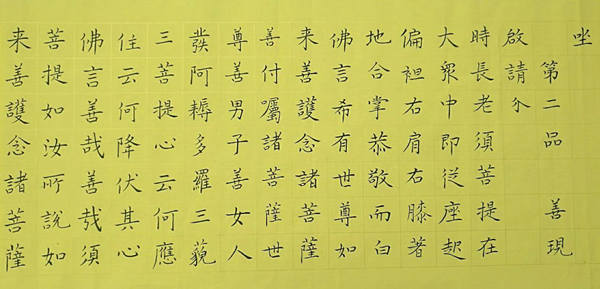 坐
第二品　善現
啟請分
時長老須菩提在
大眾中即從座起
偏袒右肩右膝著
地合掌恭敬而白
佛言希有世尊如
来善護念諸菩薩
善付囑諸菩薩世
尊善男子善女人
發阿耨多羅三藐
三菩提心云何應
住云何降伏其心
佛言善哉善哉須
菩提如汝所說如
来善護念諸菩薩